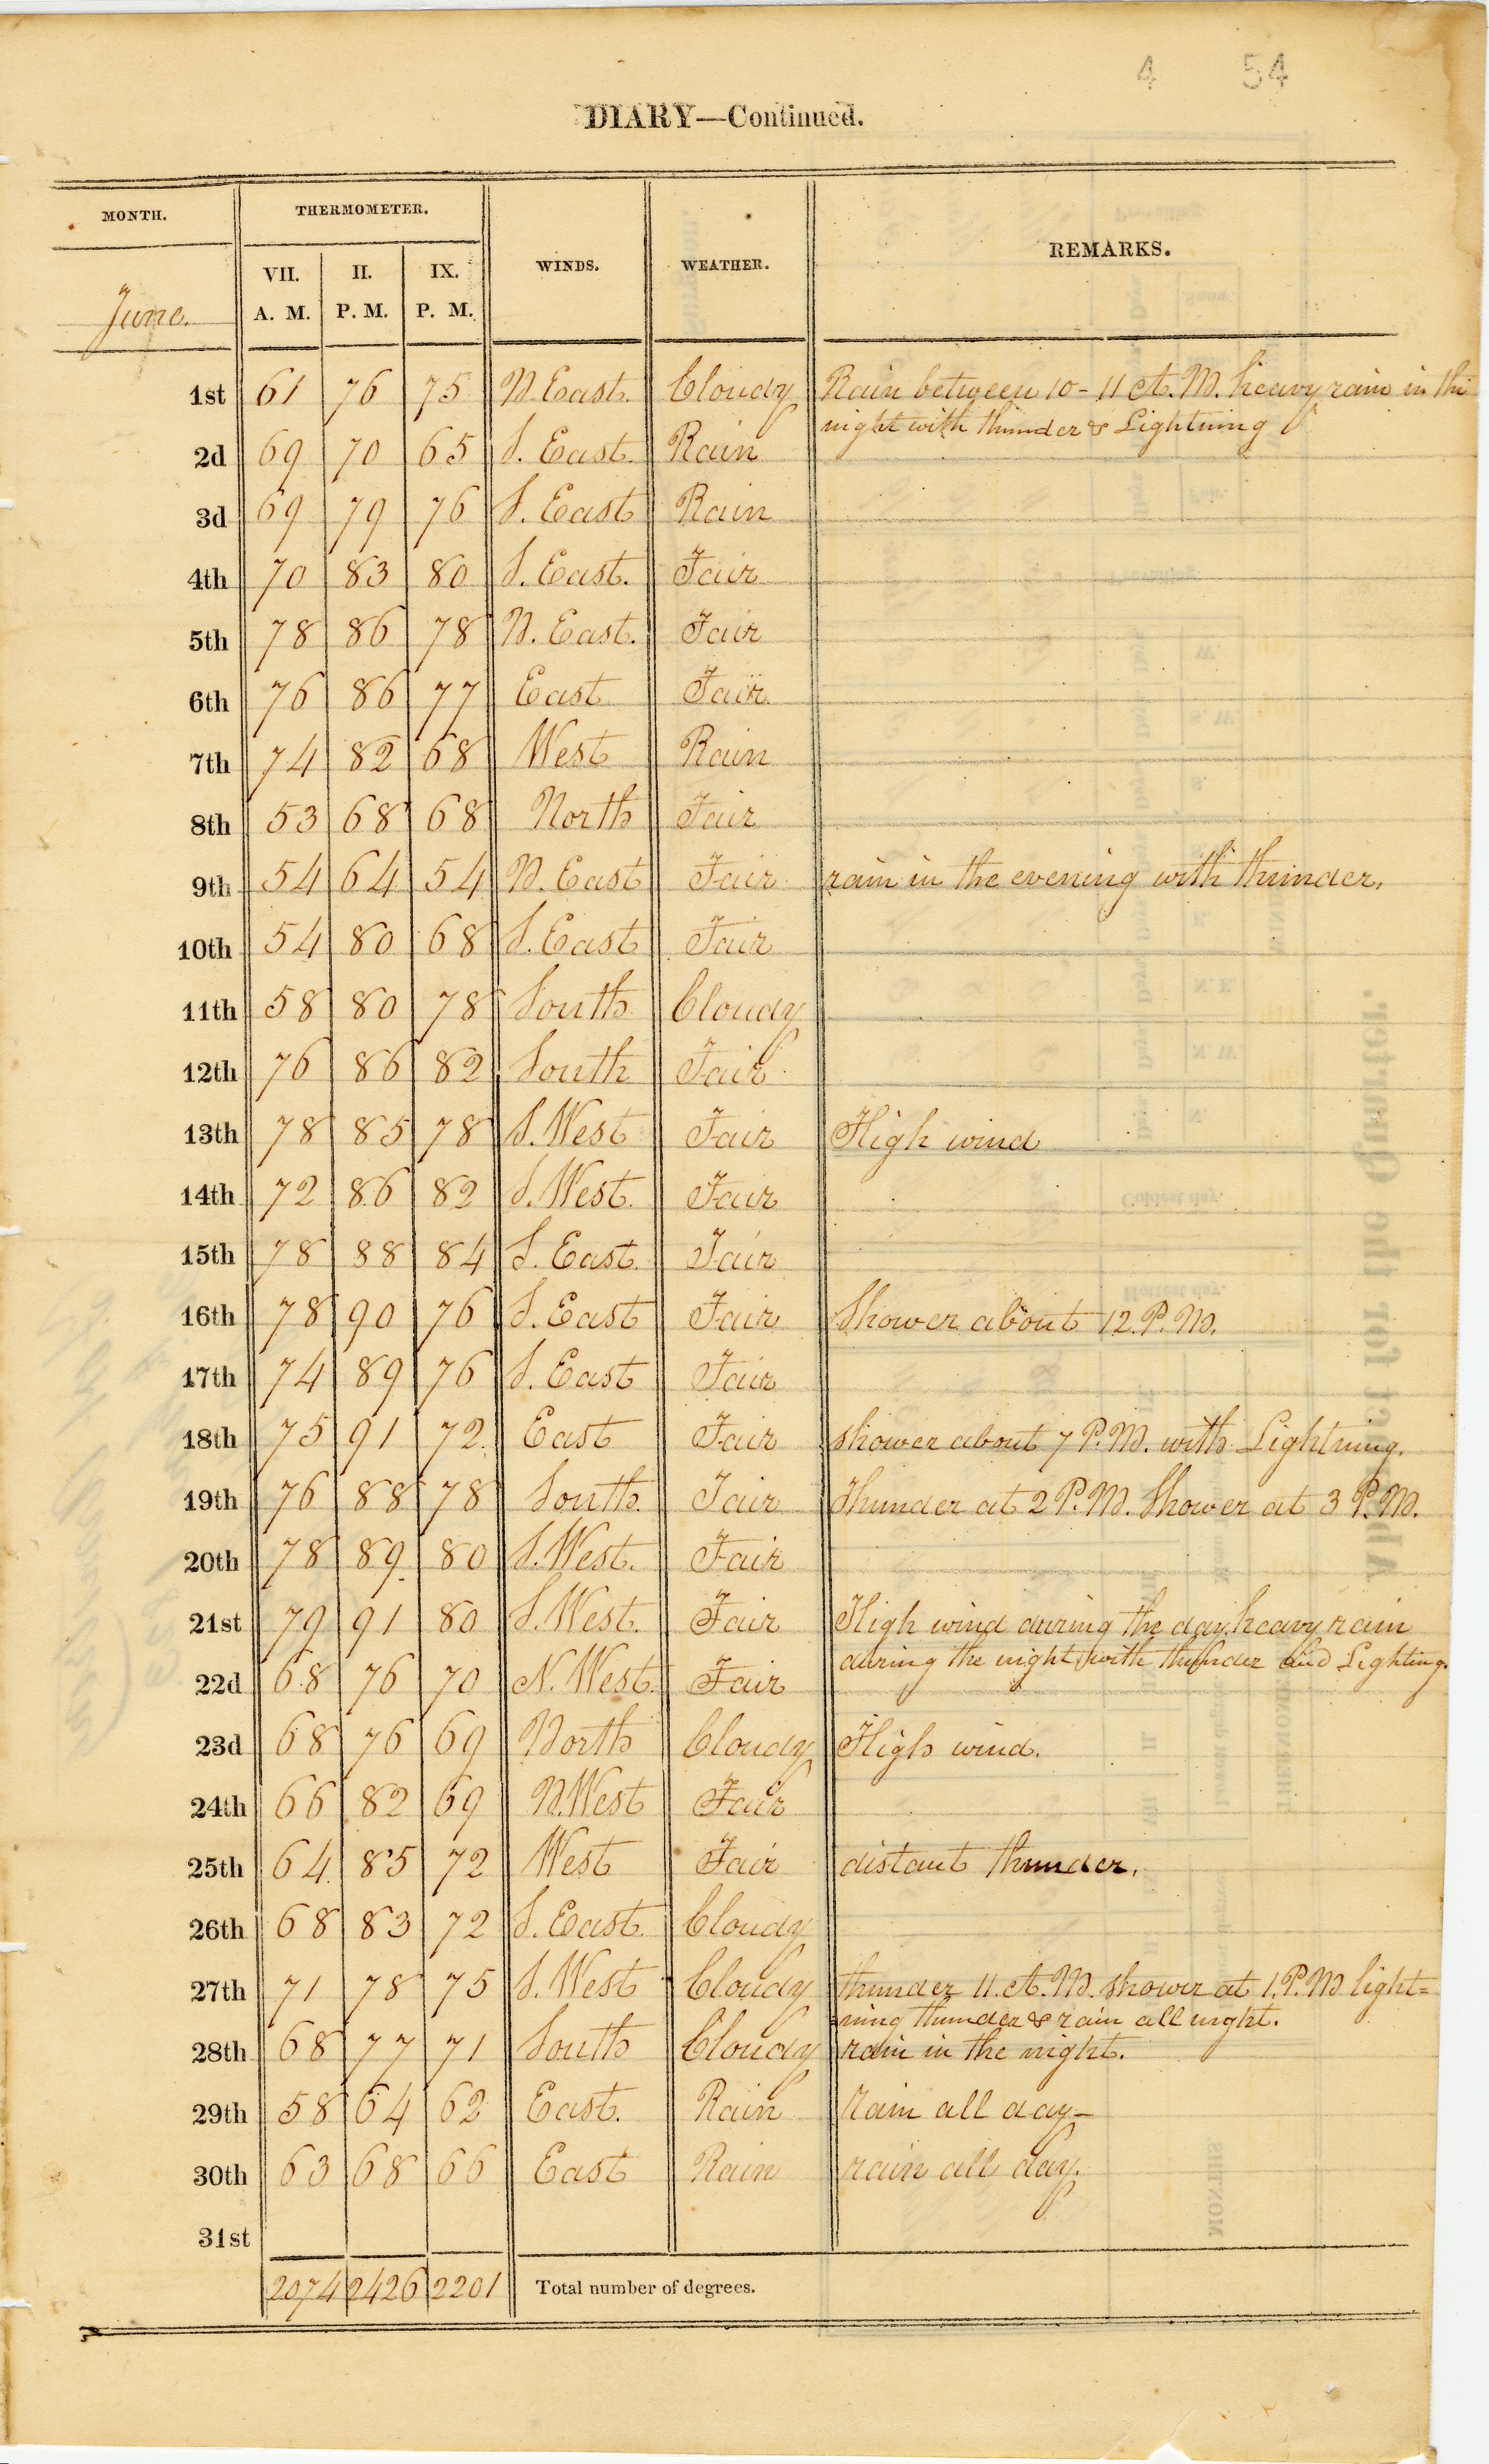 4 54
DIARY—Continued.
MONTH. THERMOMETER. WINDS. WEATHER. REMARKS.
VII. II. IX.
June. A. M. P. M. P. M.
1st 61 76 75 N. East. Cloudy Rain between 10 - 11 A. M. heavy rain in the
night with thunder & Lightning
2d 69 70 65 S. East. Rain
3d 69 79 76 S. East Rain
4th 70 83 80 S. East. Fair
5th 78 86 78 N. East. Fair
6th 76 86 77 East Fair
7th 74 82 68 West Rain
8th 53 68 68 North Fair
9th 54 64 54 N. East Fair rain in the evening with thunder.
10th 54 80 68 S. East Fair
11th 58 80 78 South Cloudy
12th 76 86 82 South Fair
13th 78 85 78 S. West Fair High wind
14th 72 86 82 S. West. Fair
15th 78 88 84 S. East. Fair
16th 78 90 76 S. East Fair Shower about 12 P. M.
17th 74 89 76 S. East Fair
18th 75 91 72 East Fair shower about 7 P. M. with Lightning.
19th 76 88 78 South Fair Thunder at 2 P. M. Shower at 3 P. M.
20th 78 89 80 S. West. Fair
21st 79 91 80 S. West. Fair High wind during the day. heavy rain
during the night with thunder and Lighting.
22d 68 76 70 N. West. Fair
23d 68 76 69 North Cloudy High wind.
24th 66 82 69 N. West Fair
25th 64 85 72 West Fair distant thunder.
26th 68 83 72 S. East. Cloudy
27th 71 78 75 S. West Cloudy thunder 11. A. M. shower at 1. P. M light=
ning thunder & rain all night.
28th 68 77 71 South Cloudy rain in the night.
29th 58 64 62 East. Rain Rain all day—
30th 63 68 66 East Rain rain all day.
31st
2074 2426 2201 Total number of degrees.